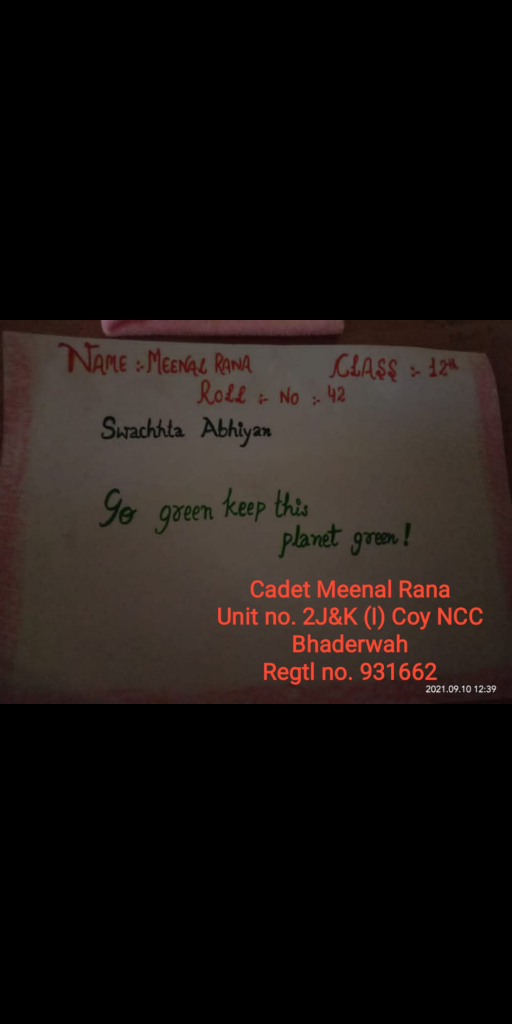 NAME :- MEENAL RANA CLASS :- 12th
Roll :- No :- 42
Swachhta Abhiyan
Go green keep this
planet green!
Cadet Meenal Rana
Unit no. 2J&K (I) Coy NCC
Bhaderwah
Regtl no. 931662
2021.09.10 12:39